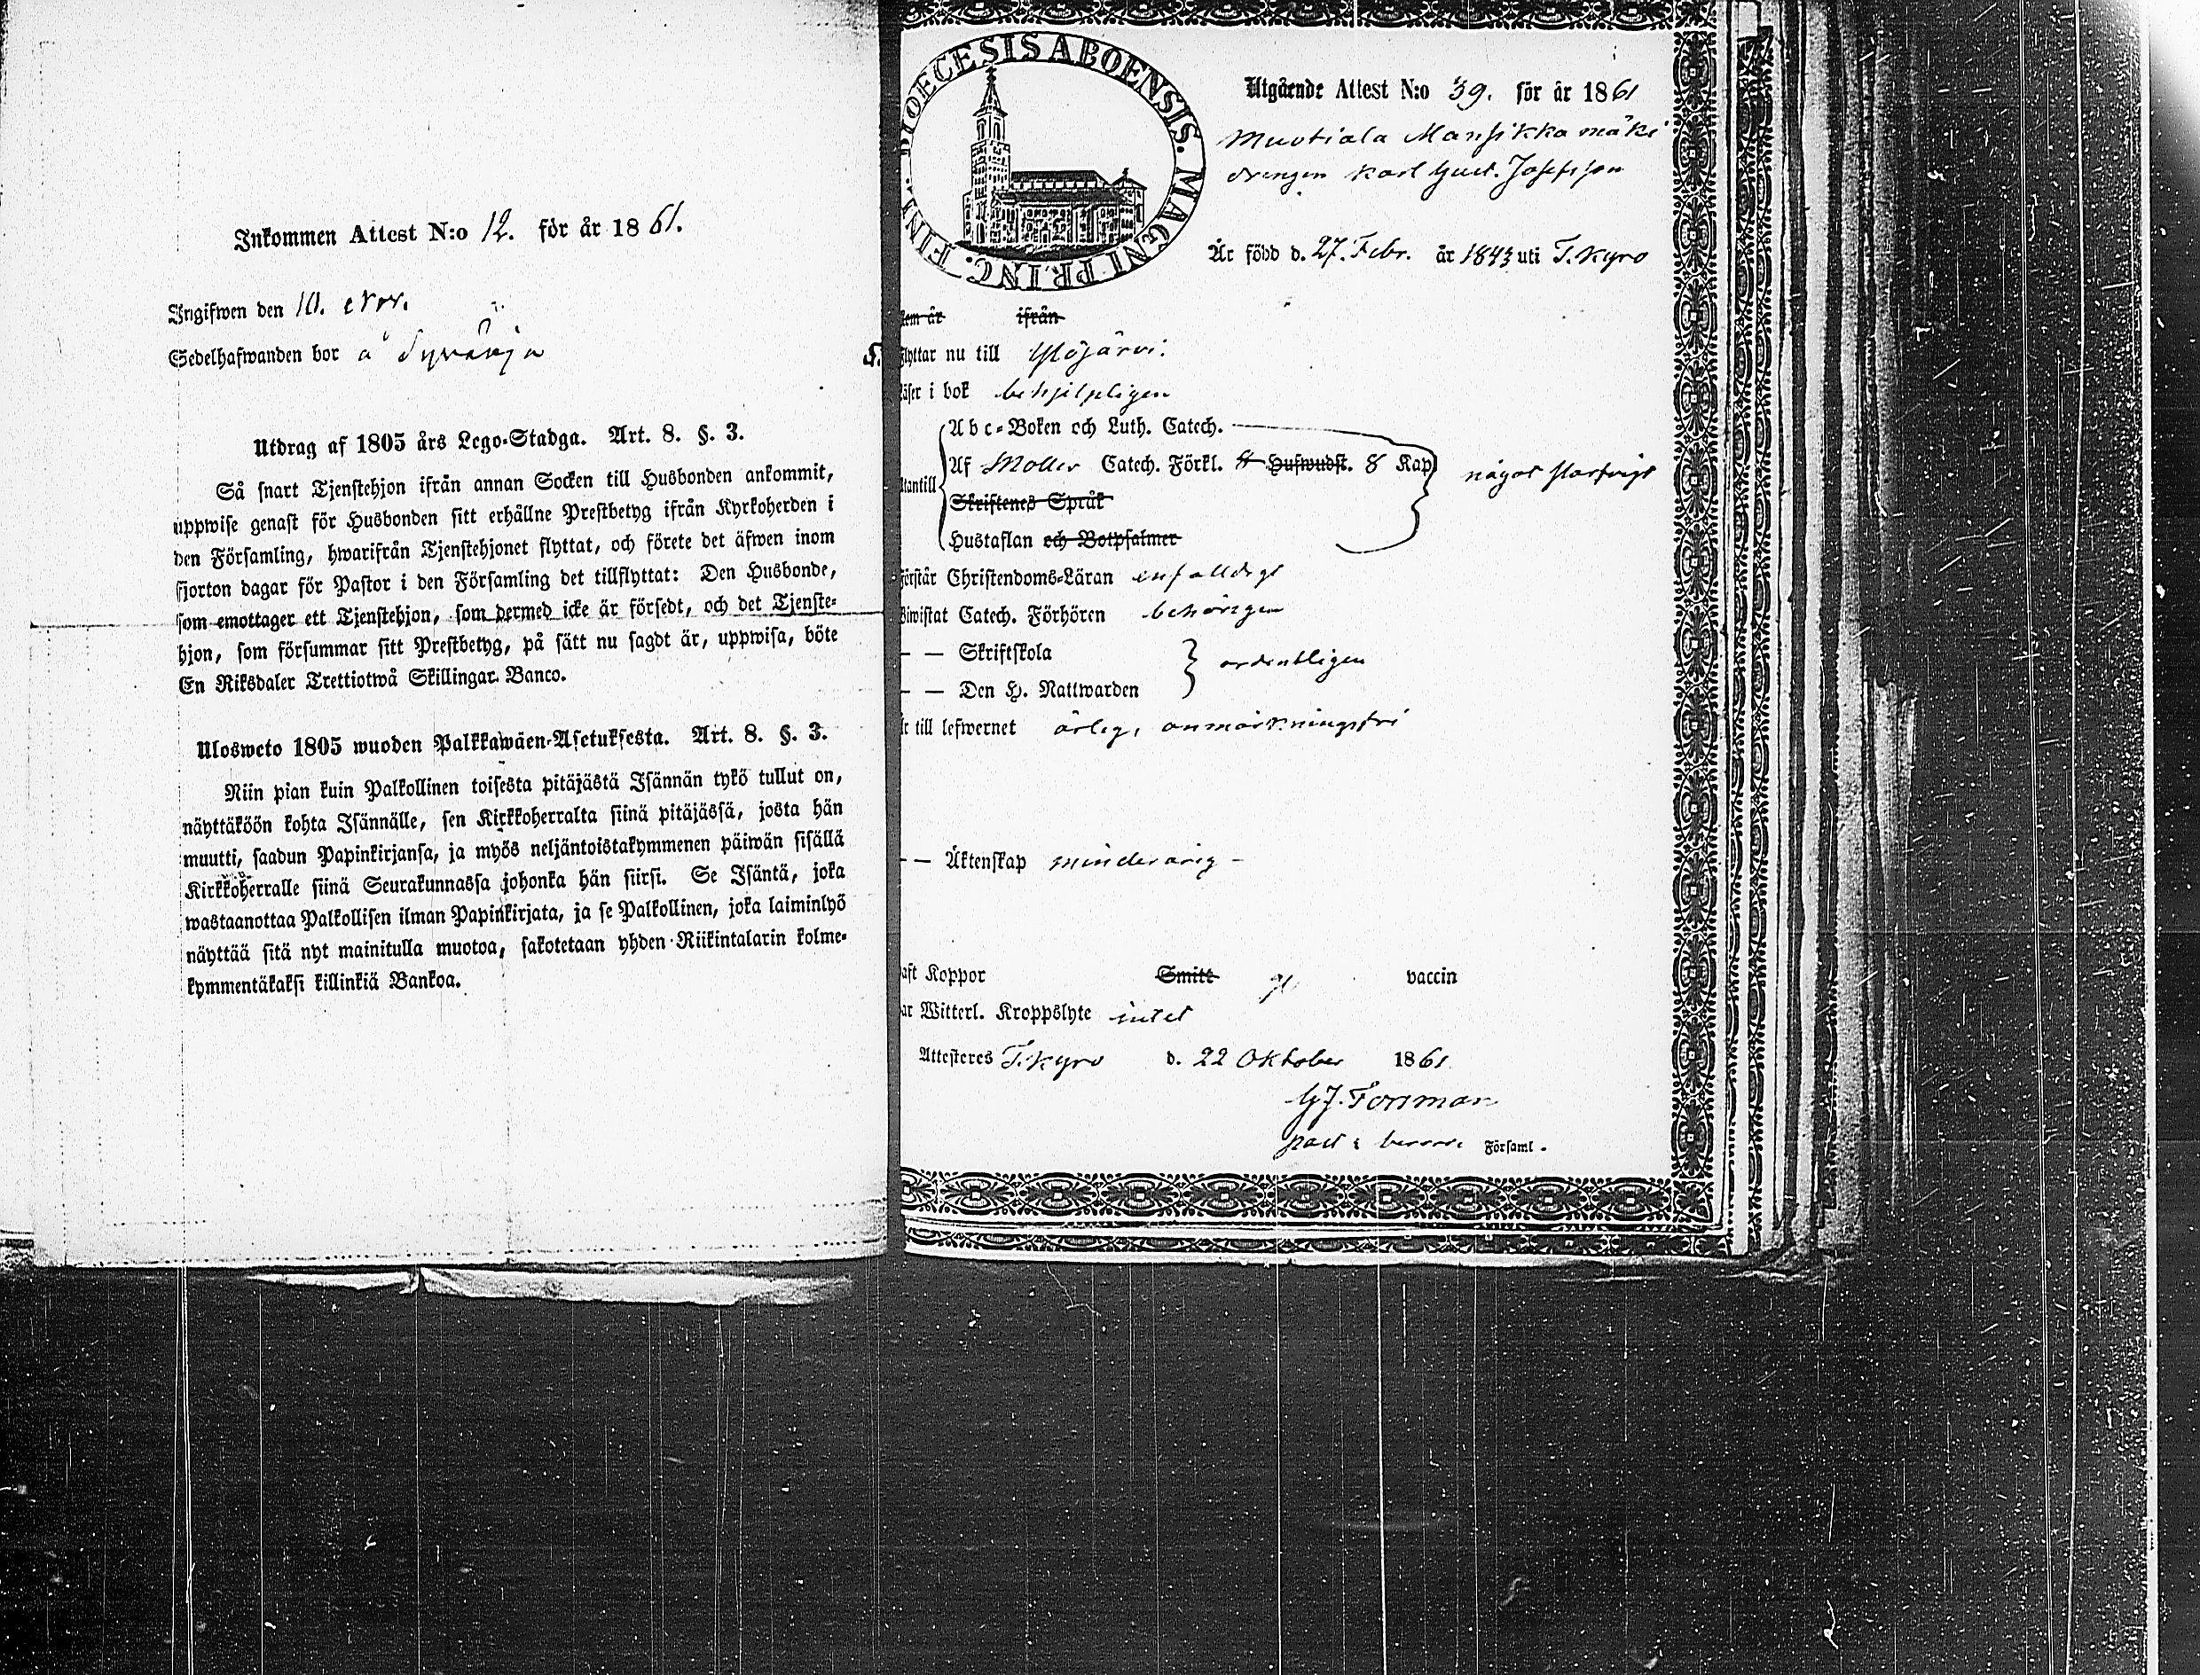 Inkommen Attest N:o 12. för år 1861.
Ingifwen den 10. Nov.
Sedelhafwanden bor å
Utdrag af 1805 års Lego-Stadga. Art. 8. §. 3.
Så snart Tjenstehjon ifrån annan Socken till Husbonden ankommit,
uppwise genast för Husbonden sitt erhållne Prestbetyg ifrån Kyrkoherden i
den Församling, hwarifrån Tjenstehjonet flyttat, och förete det äfwen inom
fjorton dagar för Pastor i den Församling det tillflyttat: Den Husbonde,
som emottager ett Tjenstehjon, som dermed icke är försedt, och det Tjenste-
hjon, som försummar sitt Prestbetyg, på sätt nu sagdt är, uppwisa, böte
En Riksdaler Trettiotwå Skillingar Banco.
Ulosweto 1805 wuoden Palkkawäen-Asetuksesta. Art. 8. §. 3.
Niin pian kuin Palkollinen toisesta pitäjästä Isännän tykö tullut on,
näyttäköön kohta Isännälle, sen Kirkkoherralta siinä pitäjässä, josta hän
muutti, saadun Papinkirjansa, ja myös neljäntoistakymmenen päiwän sisällä
Kirkkoherralle siinä Seurakunnassa johonka hän siirsi. Se Isäntä, joka
wastaanottaa Palkollisen ilman Papinkirjata, ja se Palkollinen, joka laiminlyö
näyttää sitä nyt mainitulla muotoa, sakotetaan yhden Riikintalarin kolme-
kymmentäkaksi killinkiä Bankoa.
DIOECESIS ABOENSIS. MAGNI PRINC. FINL.
Utgående Attest N:o 39. för år 1861
Muotiala Mansikkamäki
drengen Karl Gust. Josefsson
Är född d. 27. Febr. år 1843 uti T. Kyro
kom år ifrån
5. flyttar nu till Ylöjärvi.
läser i bok behjelpligen
Abc-Boken och Luth. Catech.
Af Möller Catech. Förkl. Hufwudst. 8 Kap
något
utantill
Skriftenes Språk
Hustaflan och Botpsalmer
förstår Christendoms-Läran enfaldigt
Biwistat Catech. Förhören behörigen
— — Skriftskola
ordentligen
— — Den H. Nattwarden
är till lefwernet ärlig, anmärkningsfri
— — Äktenskap minderårig —
haft Koppor Smitt vaccin
har Witterl. Kroppslyte intet
Attesteres T. Kyro d. 22 Oktober 1861
GJ. Forsman
past i Församl.